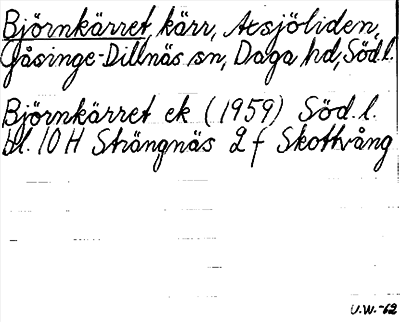 Björnkärret, kärr, Atsjöliden,
Gåsinge-Dillnäs sn, Daga hd, Söd.l.
Björnkärret ek (1959) Söd.l.
bl. 10 H Strängnäs 2 f Skottvång
U.W.-62